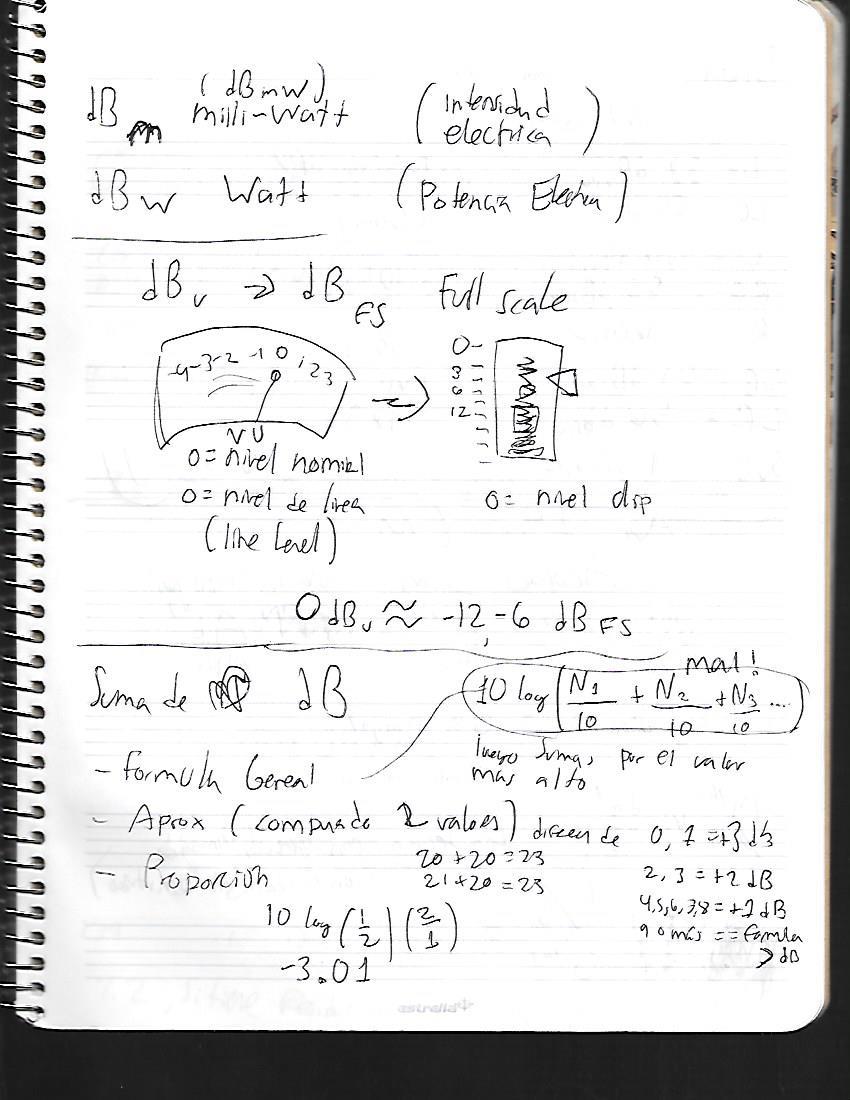 (dBmW)
dBm milli-Watt (Intensidad
electrica)
dBW Watt (Potencia Electrica)
dBv → dBFS Full scale
-4-3-2 -1 0 1 2 3
VU
0-
3 -
6 -
12 -
0 = nivel nominal
0 = nivel de linea
(line level)
0 = nivel disp
0 dBv ≈ -12, -6 dBFS
mal!
Suma de dB
10 log (N1/10 + N2/10 + N3/10 ...)
luego sumas por el valor
mas alto
- Formula Gereal
- Aprox (comparado 2 valores) diferen de 0, 1 = +3 db
20 + 20 = 23
21 + 20 = 23
2, 3 = +2 dB
- Proporcion
4,5,6,7,8 = +1 dB
9 o más == formula
> dB
10 log (1/2) (2/1)
-3.01